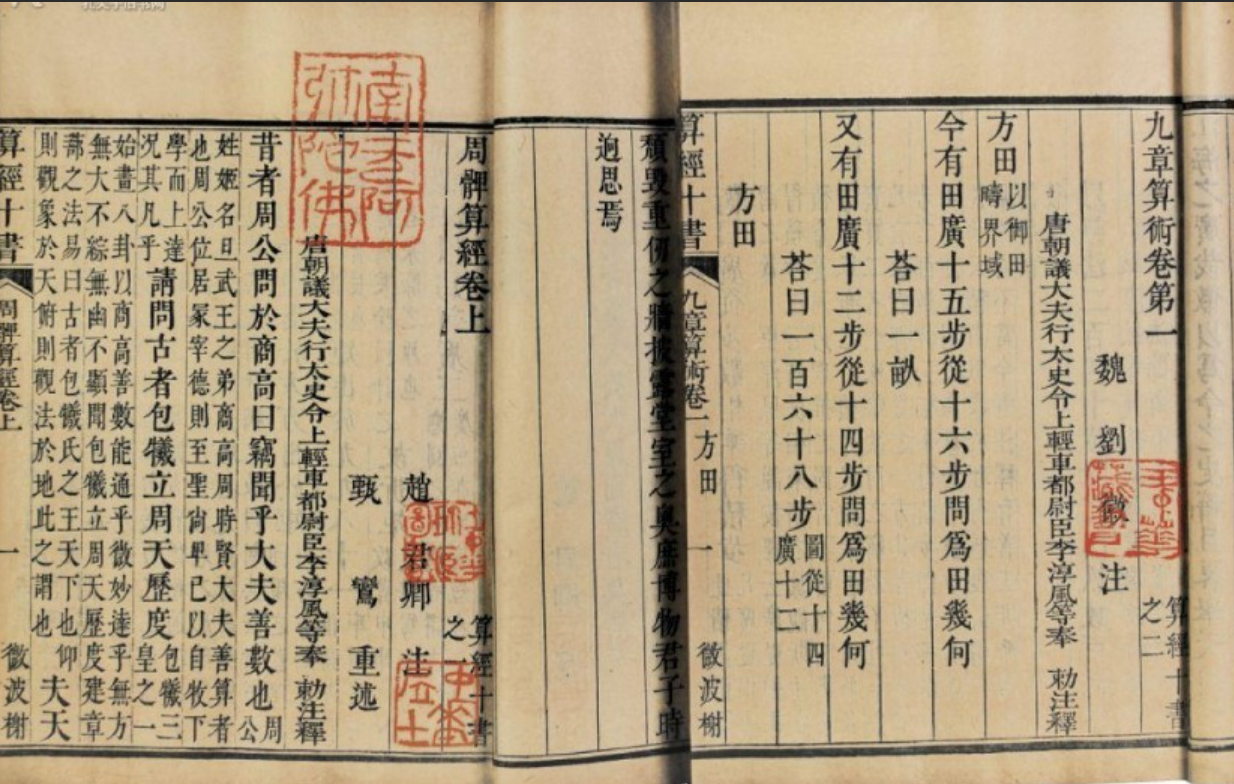 九章算術卷第一
算經十書之二
魏 劉徽 注
唐朝議大夫行太史令上輕車都尉臣李淳風等奉 勅注釋
方田以御田疇界域
今有田廣十五步從十六步問爲田幾何
荅曰一畝
又有田廣十二步從十四步問爲田幾何
荅曰一百六十八步圖從十四廣十二
方田
算經十書 九章算術卷一方田 一 微波榭
頹毀重仞之牆披露堂室之奥庶博物君子時
迥思焉
周髀算經卷上
算經十書之一
趙君卿 注
甄鸞 重述
唐朝議大夫行太史令上輕車都尉臣李淳風等奉 勅注釋
南无阿弥陀佛
昔者周公問於商高曰竊聞乎大夫善數也周公
姓姬名旦武王之弟商高周時賢大夫善算者
也周公位居冢宰德則至聖尙卑己以自牧下
學而上達況其凡乎請問古者包犧立周天歷度包犧三皇之一
始畫八卦以商高善數能通乎微妙達乎無方
無大不綜無幽不顯聞包犧立周天歷度建章
蔀之法易曰古者包犧氏之王天下也仰
則觀象於天俯則觀法於地此之謂也夫天
算經十書 周髀算經卷上 一 微波榭